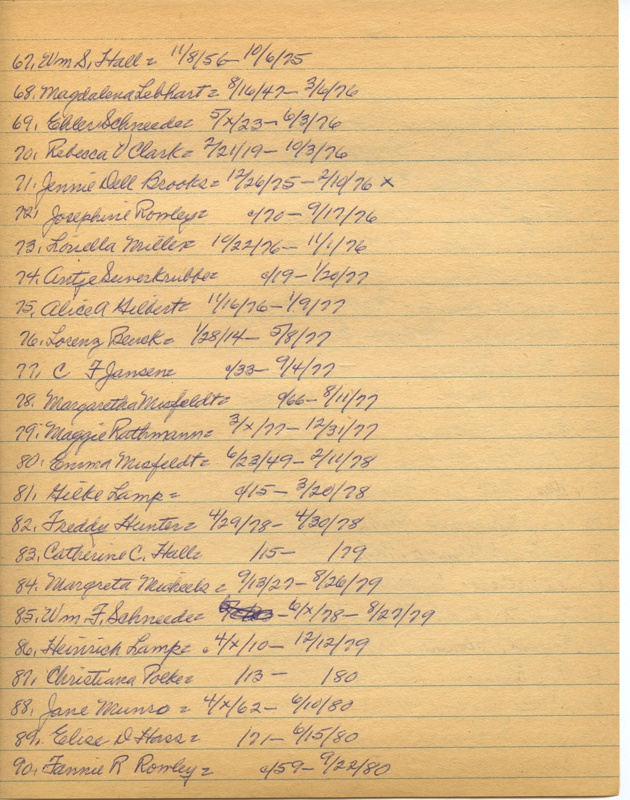 67. Wm S. Hall = 11/8/56 - 10/6/75
68. Magdalena Lebhart = 8/16/47 - 3/6/76
69. Ehler Schneede = 5/x/23 - 6/3/76
70. Rebecca V Clark = 2/21/19 - 10/3/76
71. Jennie Dell Brooks = 12/26/75 - 2/10/76 x
72. Josephine Rowley = c/70 - 9/17/76
73. Loriella Miller = 10/22/76 - 11/1/76
74. Antje Suverkrubbe = c/19 - 1/20/77
75. Alice A Gilbert = 11/16/76 - 1/9/77
76. Lorenz Beuck = 1/28/14 - 5/8/77
77. C F Jansen = c/33 - 9/4/77
78. Margaretha Misfeldt = c/66 - 8/11/77
79. Maggie Rathmann = 3/x/77 - 12/31/77
80. Emma Misfeldt = 6/23/49 - 2/11/78
81. Hilke Lamp = c/15 - 3/20/78
82. Freddy Hunter = 4/29/78 - 4/30/78
83. Catherine C. Hall = /15 - /79
84. Margreta Micheels = 9/13/27 - 8/26/79
85. Wm F. Schneede = - 6/x/78 - 8/27/79
86. Heinrich Lamp = 4/x/10 - 12/12/79
87. Christiana Polke = /13 - /80
88. Jane Munro = 4/x/62 - 6/10/80
89. Elise D Hass = /71 - 6/15/80
90. Fannie R Rowley = c/59 - 9/22/80